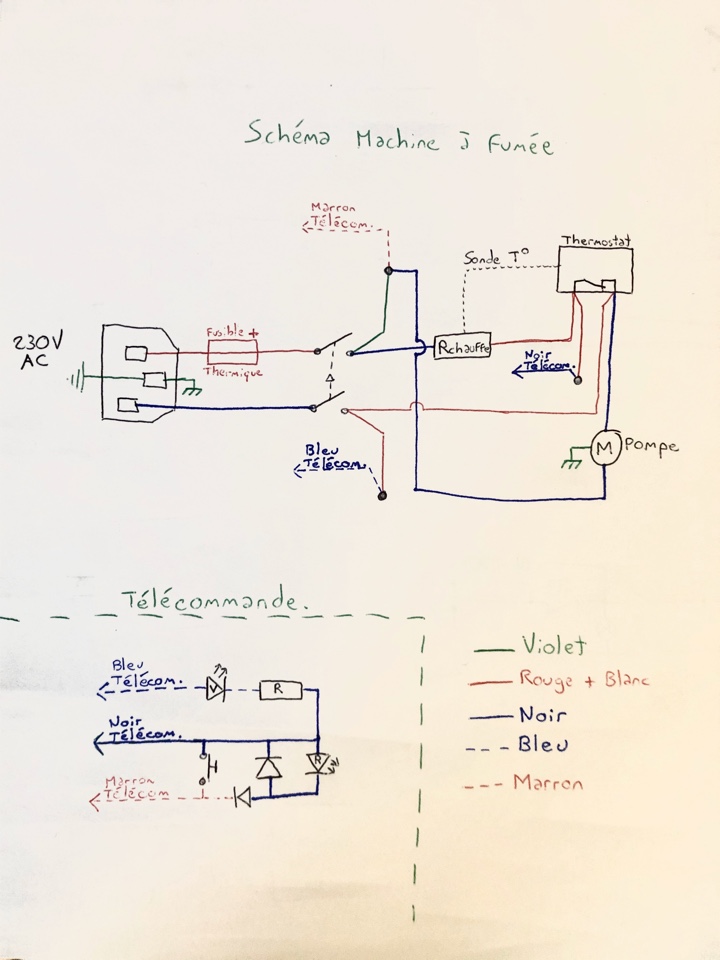 Schéma Machine à Fumée
Marron
Télécom.
Thermostat
Sonde T°
230V
AC
Fusible +
Thermique
Rchauffe
Noir
Télécom.
Bleu
Télécom.
M
Pompe
Télécommande.
Bleu
Télécom.
V
R
Noir
Télécom.
R
Marron
Télécom
Violet
Rouge + Blanc
Noir
Bleu
Marron